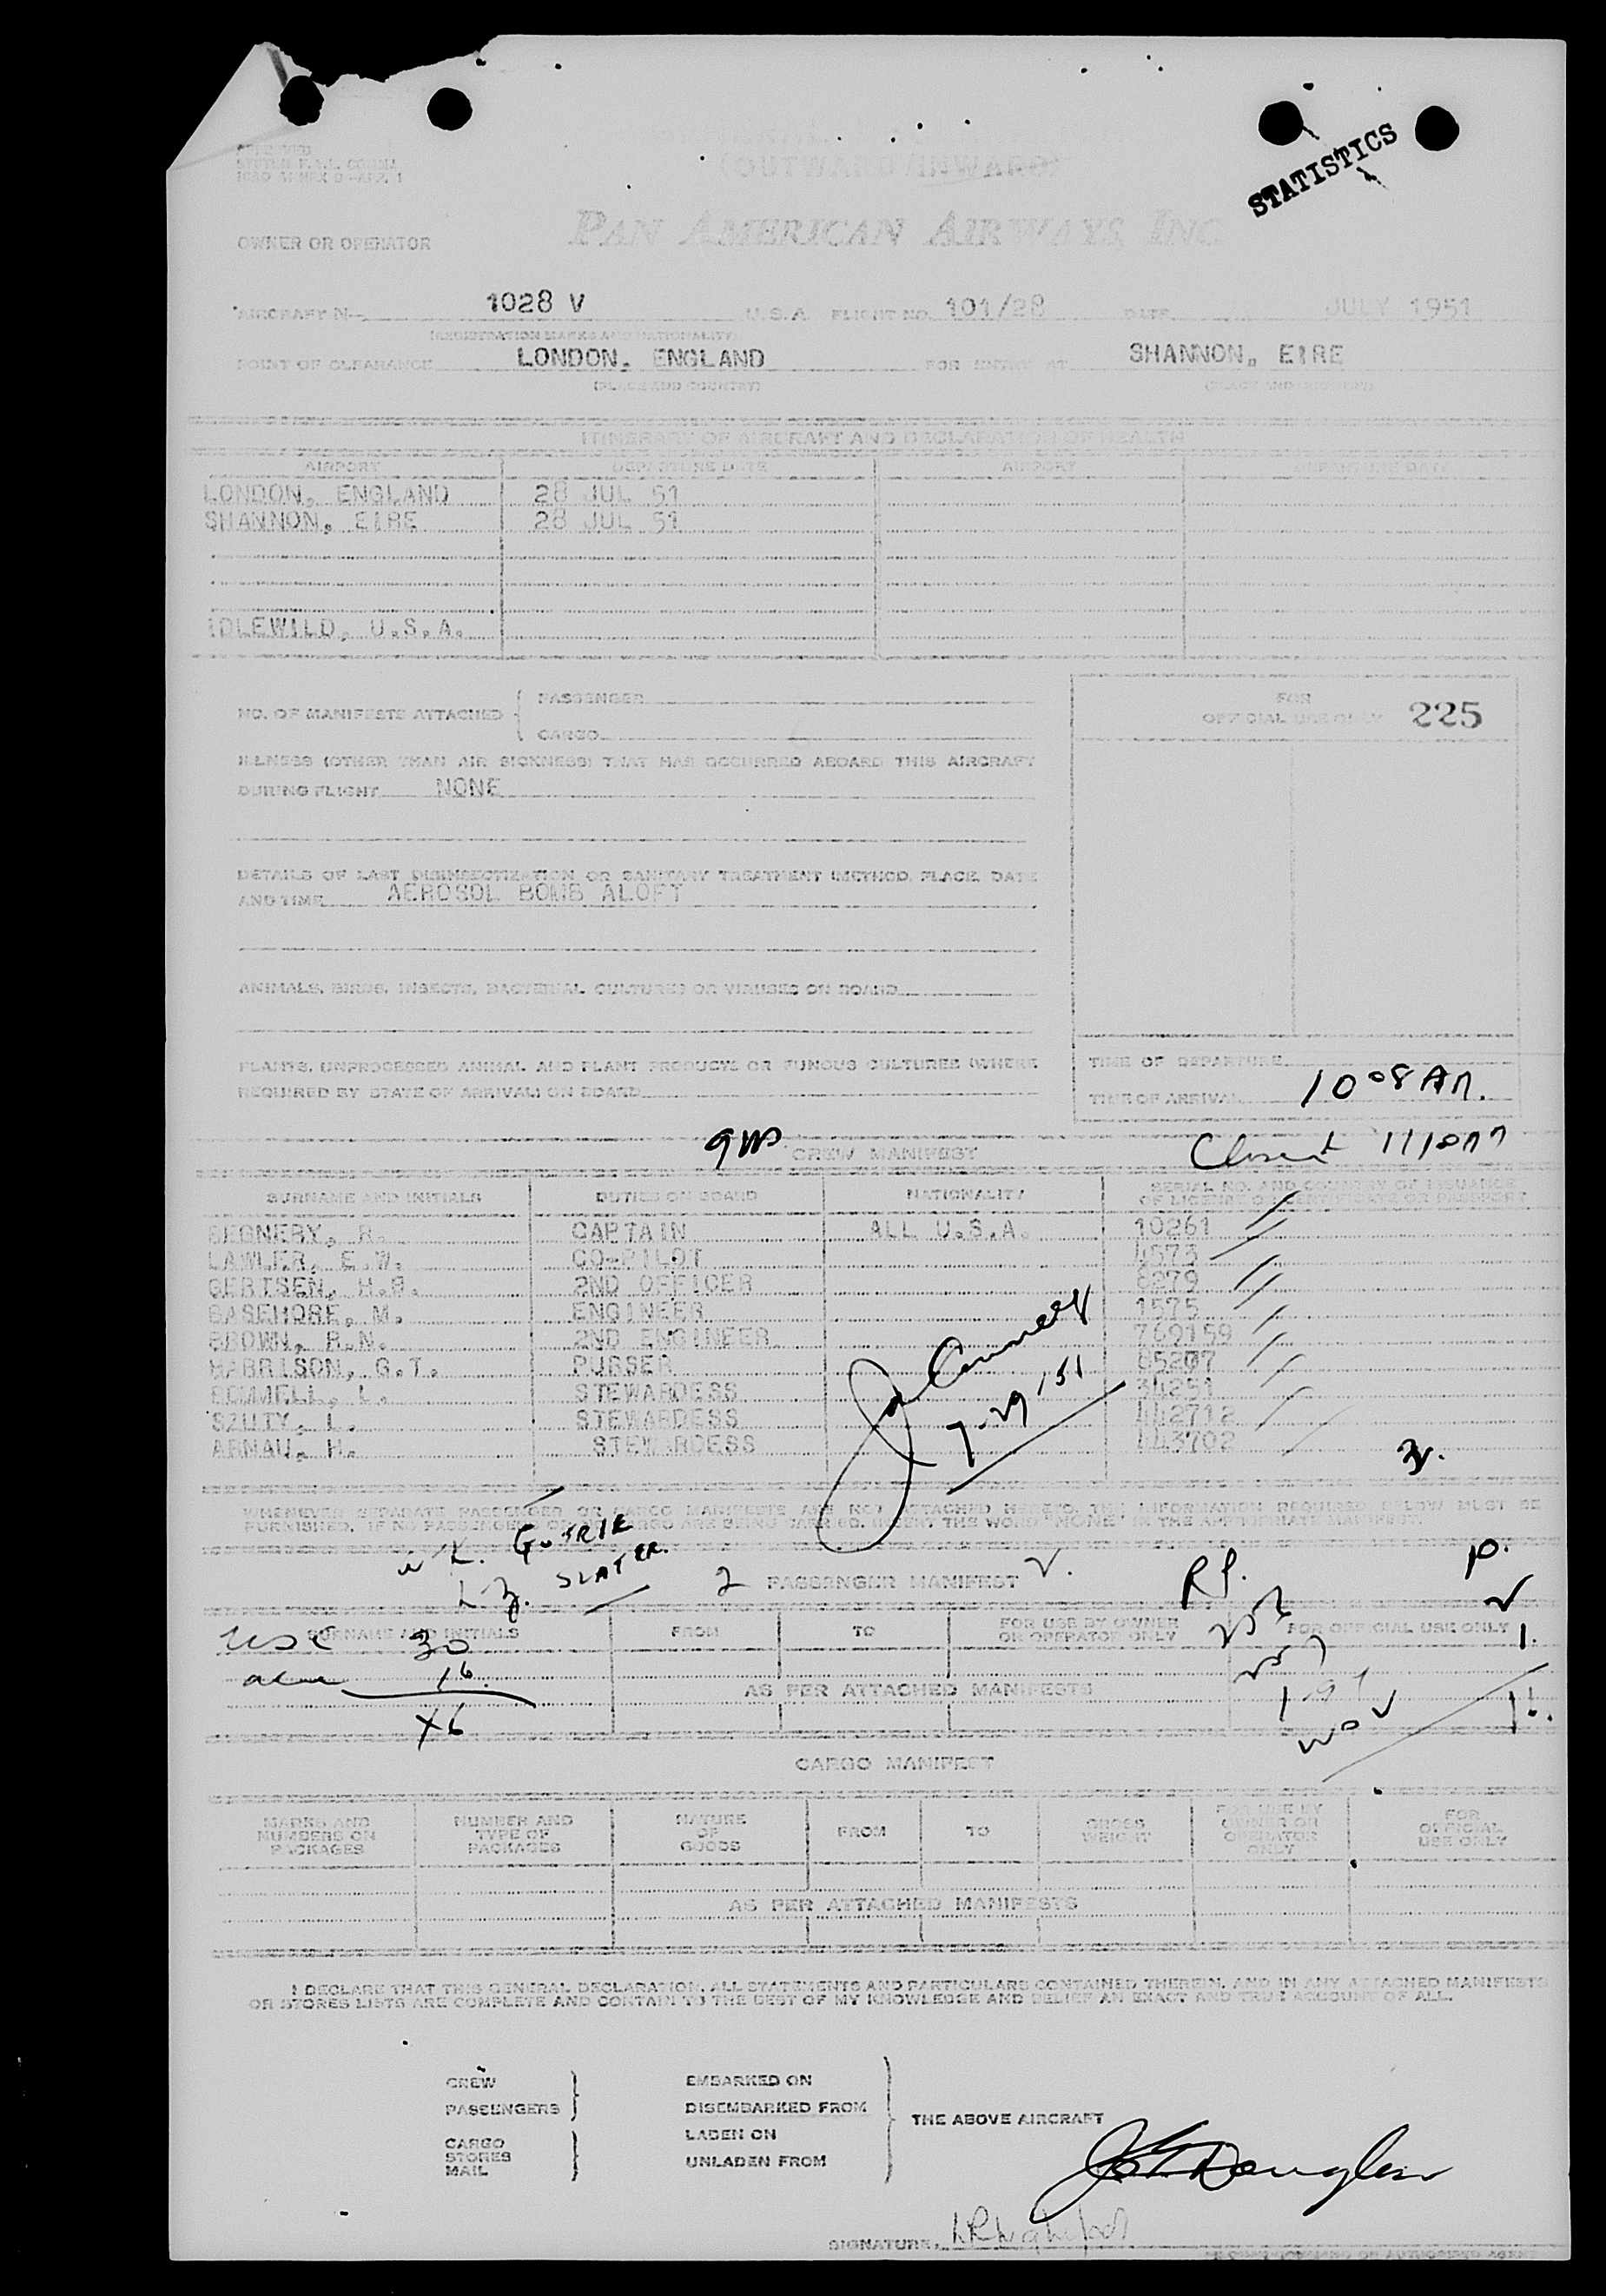 STATISTICS
(OUTWARD/INWARD)
OWNER OR OPERATOR PAN AMERICAN AIRWAYS INC
AIRCRAFT N 1028 V U.S.A. FLIGHT NO. 101/28 DATE JULY 1951
(REGISTRATION MARKS AND NATIONALITY)
POINT OF CLEARANCE LONDON, ENGLAND FOR ENTRY AT SHANNON, EIRE
(PLACE AND COUNTRY) (PLACE AND COUNTRY)
ITINERARY OF AIRCRAFT AND DECLARATION OF HEALTH
AIRPORT DEPARTURE DATE AIRPORT DEPARTURE DATE
LONDON, ENGLAND 28 JUL 51
SHANNON, EIRE 28 JUL 51
IDLEWILD, U.S.A.
NO. OF MANIFESTS ATTACHED { PASSENGER
CARGO
FOR
OFFICIAL USE ONLY 225
ILLNESS (OTHER THAN AIR SICKNESS) THAT HAS OCCURRED ABOARD THIS AIRCRAFT
DURING FLIGHT NONE
DETAILS OF LAST DISINSECTIZATION OR SANITARY TREATMENT (METHOD, PLACE, DATE
AND TIME AEROSOL BOMB ALOFT
ANIMALS, BIRDS, INSECTS, BACTERIAL CULTURES OR VIRUSES ON BOARD
PLANTS, UNPROCESSED ANIMAL AND PLANT PRODUCTS OR FUNGUS CULTURES (WHERE
REQUIRED BY STATE OF ARRIVAL) ON BOARD
TIME OF DEPARTURE
TIME OF ARRIVAL 10 08 AM.
CREW MANIFEST
SURNAME AND INITIALS DUTIES ON BOARD NATIONALITY SERIAL NO. AND COUNTRY OF ISSUANCE
OF LICENSE OR CERTIFICATE OR PASSPORT
R. CAPTAIN ALL U.S.A. 10261
LAWLER, E.W. CO-PILOT 4573
GERTSEN, H.G. 2ND OFFICER 8279
BASEHORE, M. ENGINEER 1575
BROWN, R.N. 2ND ENGINEER 769159
HARRISON, G.T. PURSER 65207
BOMMELL, L. STEWARDESS 34251
SZUTY, L. STEWARDESS 442712
ARNAU, H. STEWARDESS 443702
7-29-51
WHENEVER SEPARATE PASSENGER OR CARGO MANIFESTS ARE NOT ATTACHED HERETO, THE INFORMATION REQUIRED BELOW MUST BE
FURNISHED. IF NO PASSENGERS OR CARGO ARE BEING CARRIED, INSERT THE WORD "NONE" IN THE APPROPRIATE MANIFEST.
SLATER.
2 PASSENGER MANIFEST
SURNAME AND INITIALS FROM TO FOR USE BY OWNER
OR OPERATOR ONLY FOR OFFICIAL USE ONLY
30
16
AS PER ATTACHED MANIFESTS
CARGO MANIFEST
MARKS AND
NUMBERS ON
PACKAGES
NUMBER AND
TYPE OF
PACKAGES
NATURE
OF
GOODS
FROM
TO
GROSS
WEIGHT
FOR USE BY
OWNER OR
OPERATOR
ONLY
FOR
OFFICIAL
USE ONLY
AS PER ATTACHED MANIFESTS
I DECLARE THAT THIS GENERAL DECLARATION, ALL STATEMENTS AND PARTICULARS CONTAINED THEREIN, AND IN ANY ATTACHED MANIFESTS
OR STORES LISTS ARE COMPLETE AND CONTAIN TO THE BEST OF MY KNOWLEDGE AND BELIEF AN EXACT AND TRUE ACCOUNT OF ALL.
CREW
PASSENGERS
CARGO
STORES
MAIL
EMBARKED ON
DISEMBARKED FROM
LADEN ON
UNLADEN FROM
THE ABOVE AIRCRAFT
SIGNATURE.